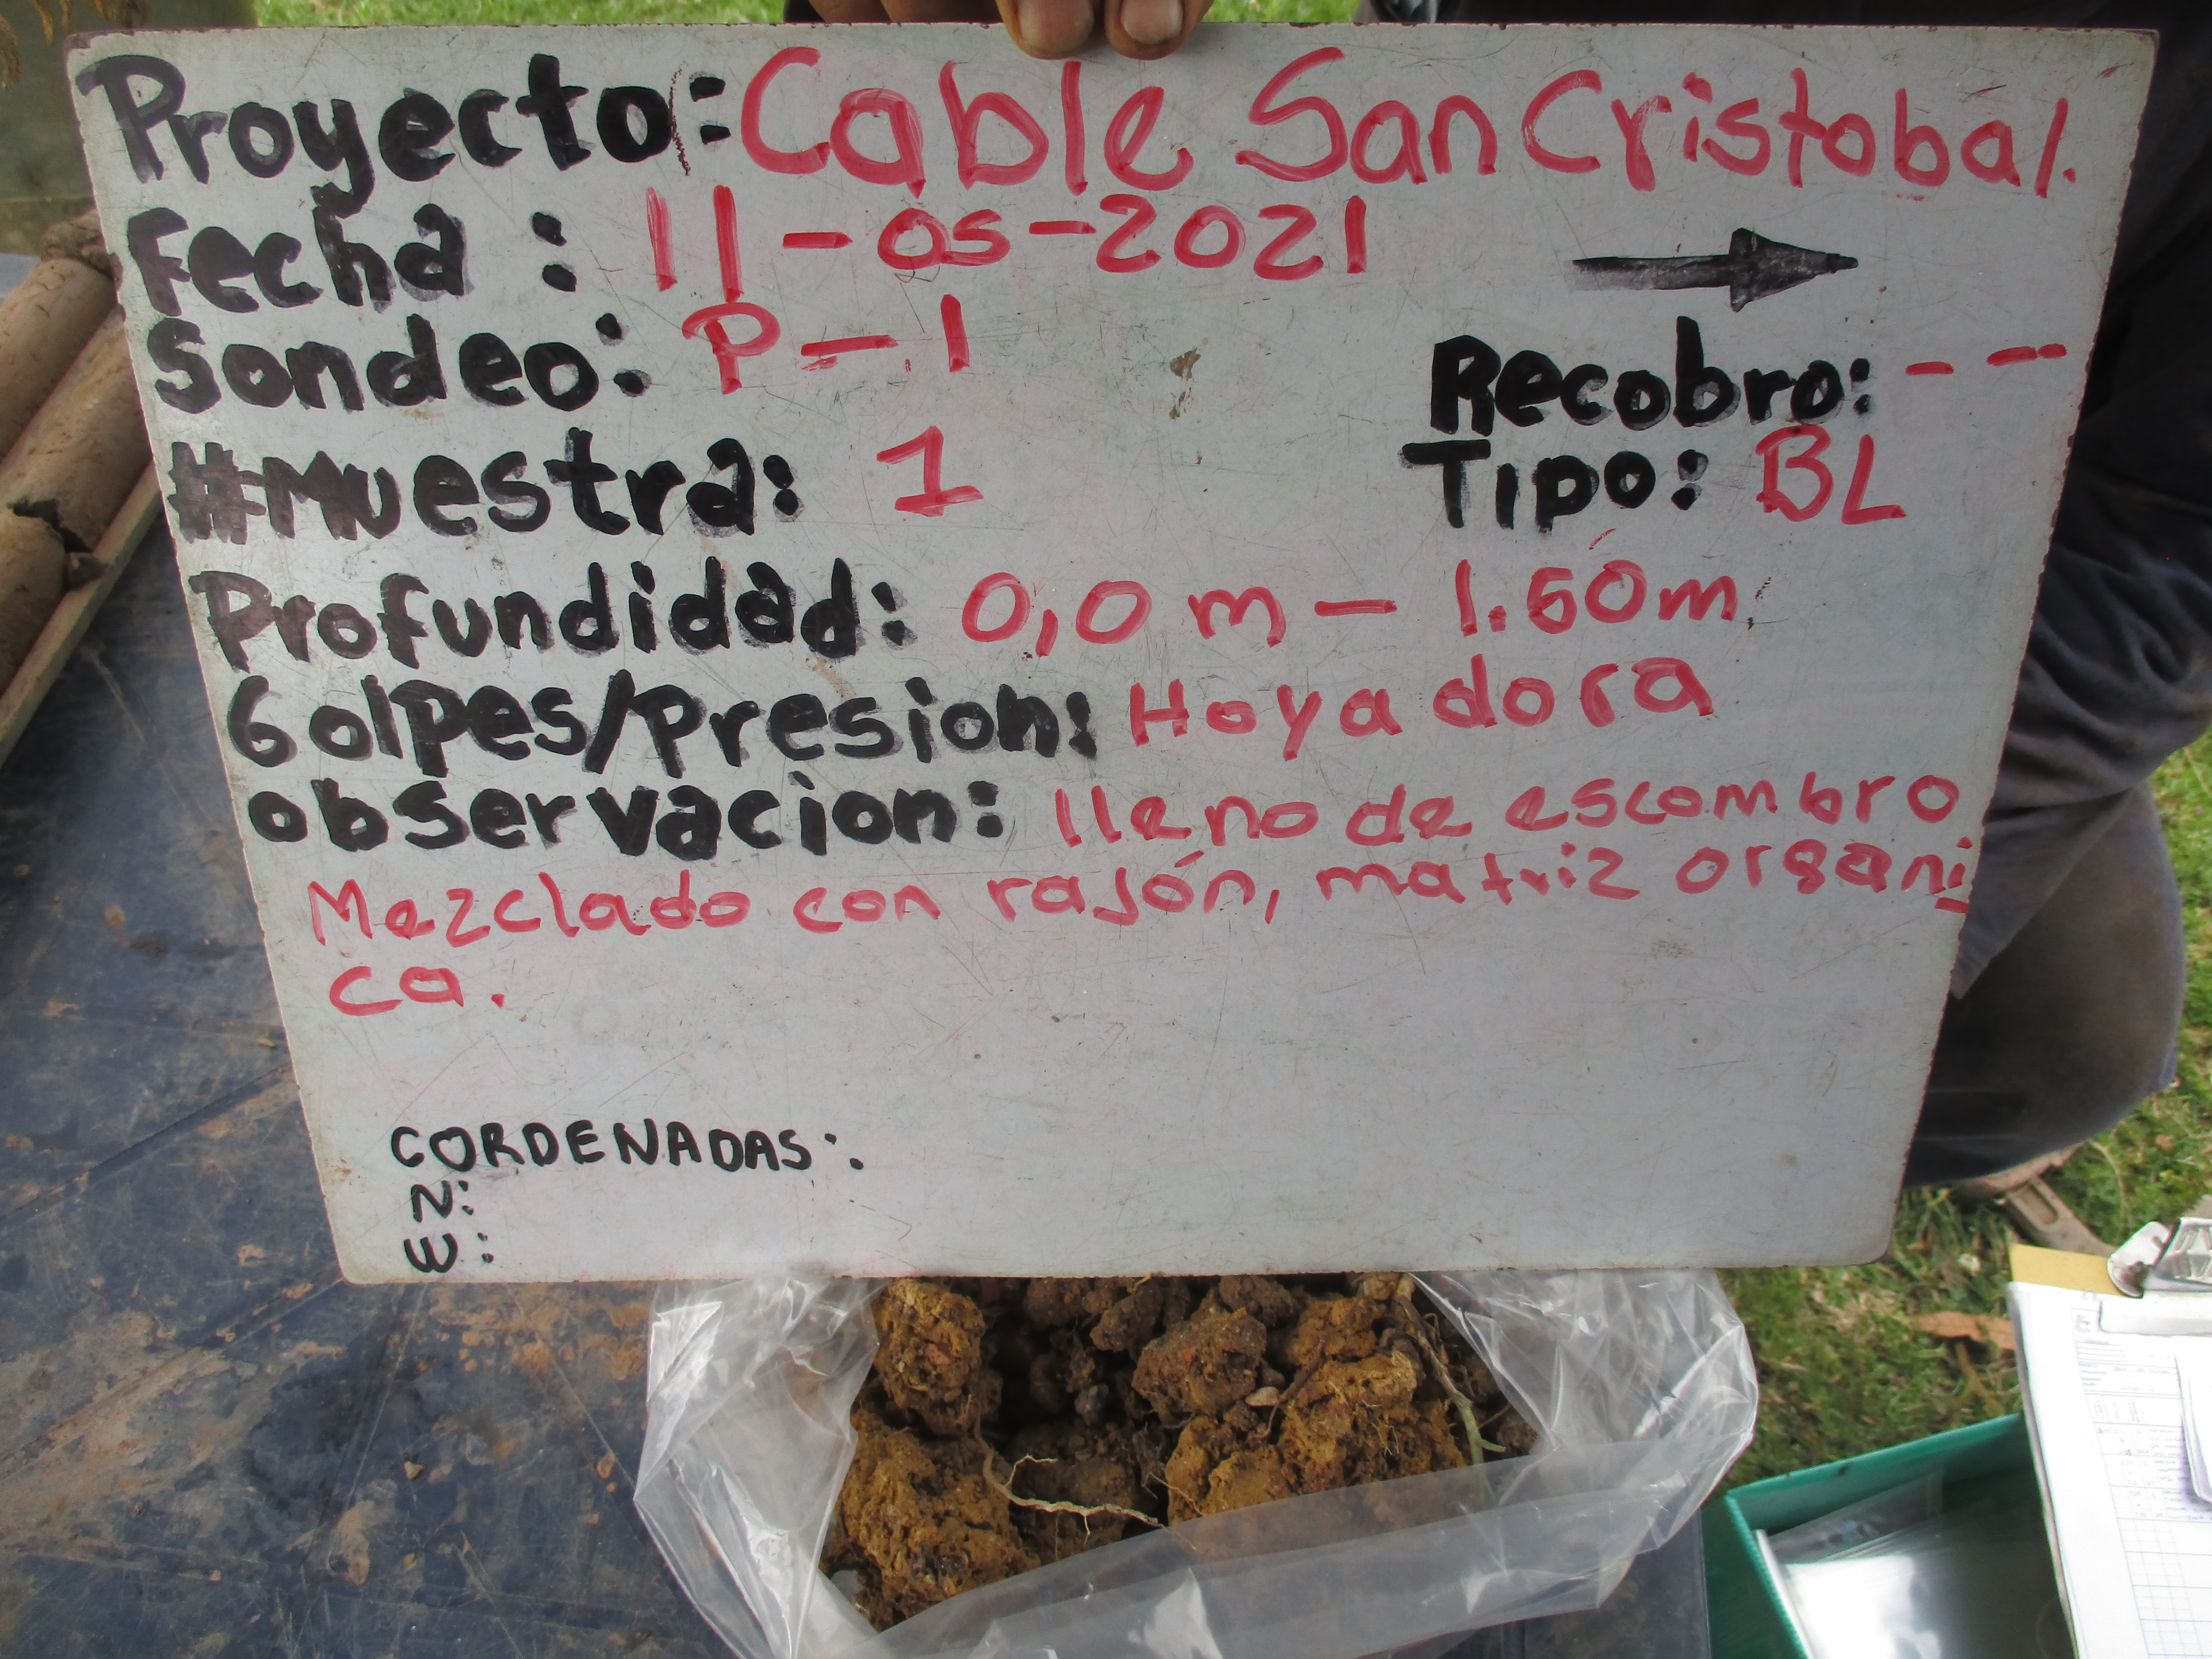 Proyecto: Cable San Cristobal.
Fecha : 11-05-2021
Sondeo: P-1
Recobro: - --
#Muestra: 1
Tipo: BL
Profundidad: 0,0 m - 1.60m
Golpes/Presion: Hoyadora
observacion: lleno de escombro
Mezclado con rajón, matriz organi
ca.
CORDENADAS:
N:
W: